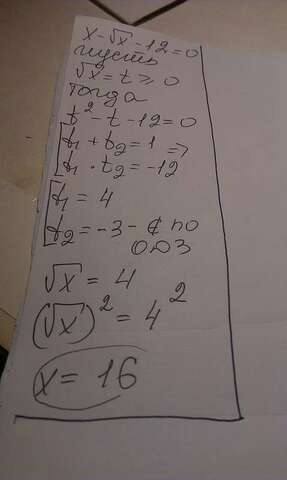 x-√x-12=0
пусть
√x=t≥0
тогда
t²-t-12=0
t₁+t₂=1 ⇒
t₁·t₂=-12
t₁=4
t₂=-3-∉ по
ОДЗ
√x=4
(√x)²=4²
x=16